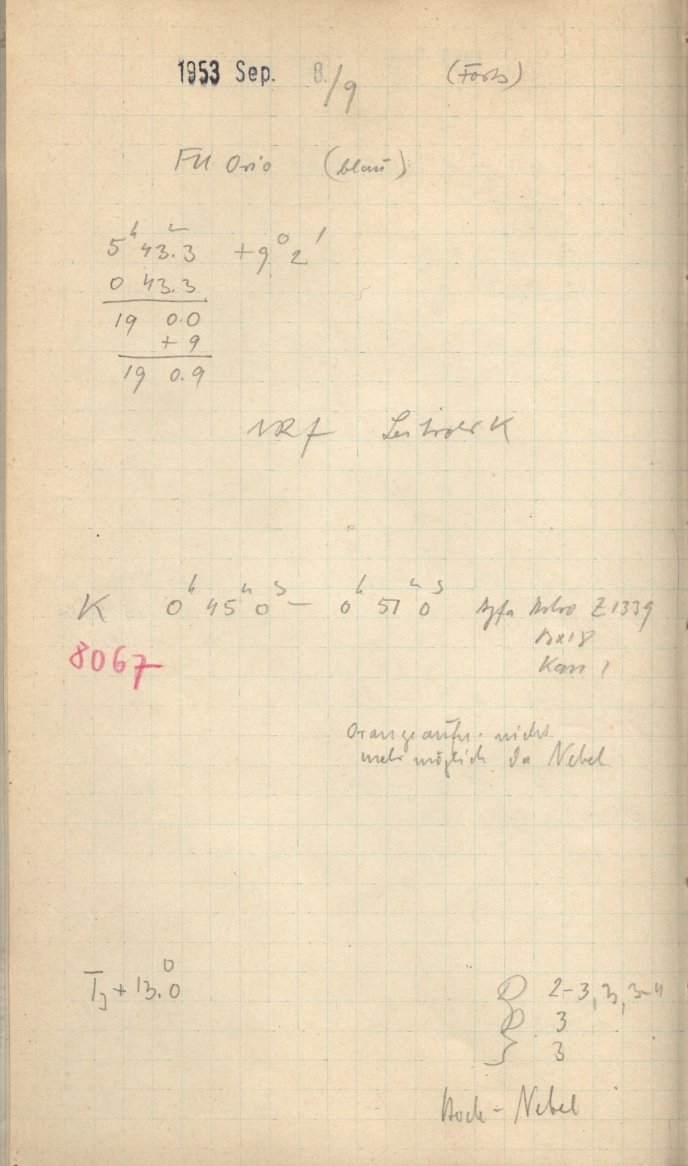 1953 Sep. 8./9 (Forts)
FU Orio (blau)
5ʰ 43.3 +9° 2′
0 43.3
19 0.0
+ 9
19 0.9
K 0ʰ 45ᵐ 0ˢ — 0ʰ 51 ᵐ 0ˢ Agfa Astro Z 1339
8067
Kass
Orangeaufn. nicht
mehr möglich da Nebel
+ 13.0°
2-3, 3, 3-4
3
3
Hoch-Nebel